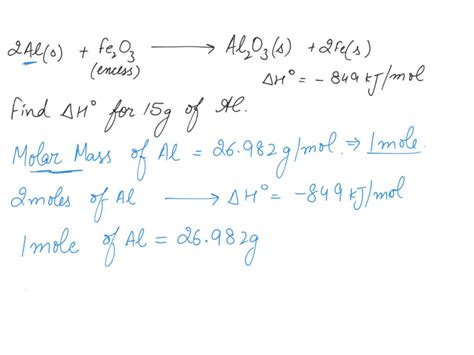 2Al(s) + Fe₂O₃ ⟶ Al₂O₃(s) + 2Fe(s)
(excess)
ΔH° = - 849 kJ/mol
Find ΔH° for 15g of Al.
Molar Mass of Al = 26.982 g/mol. ⇒ 1 mole.
2 moles of Al ⟶ ΔH° = -849 kJ/mol
1 mole of Al = 26.982g